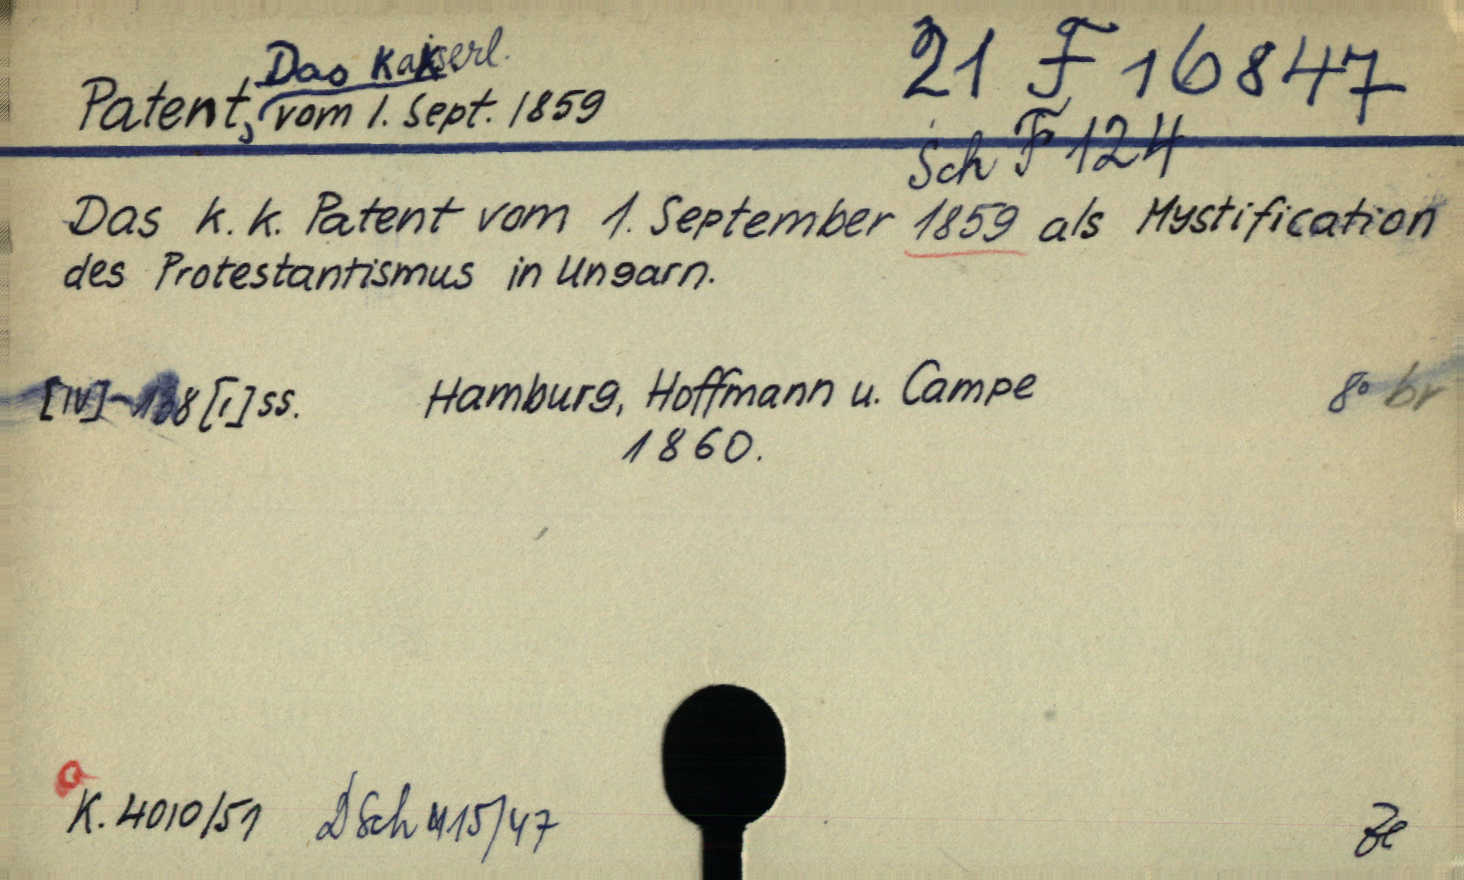 Das Kaiserl.
Patent, vom 1. Sept. 1859
21 F 16847
Sch F 124
Das k. k. Patent vom 1. September 1859 als Mystification
des Protestantismus in Ungarn.
[IV]-138[1] ss. Hamburg, Hoffmann u. Campe 8° br
1860.
K. 4010/51 DSch 415/47